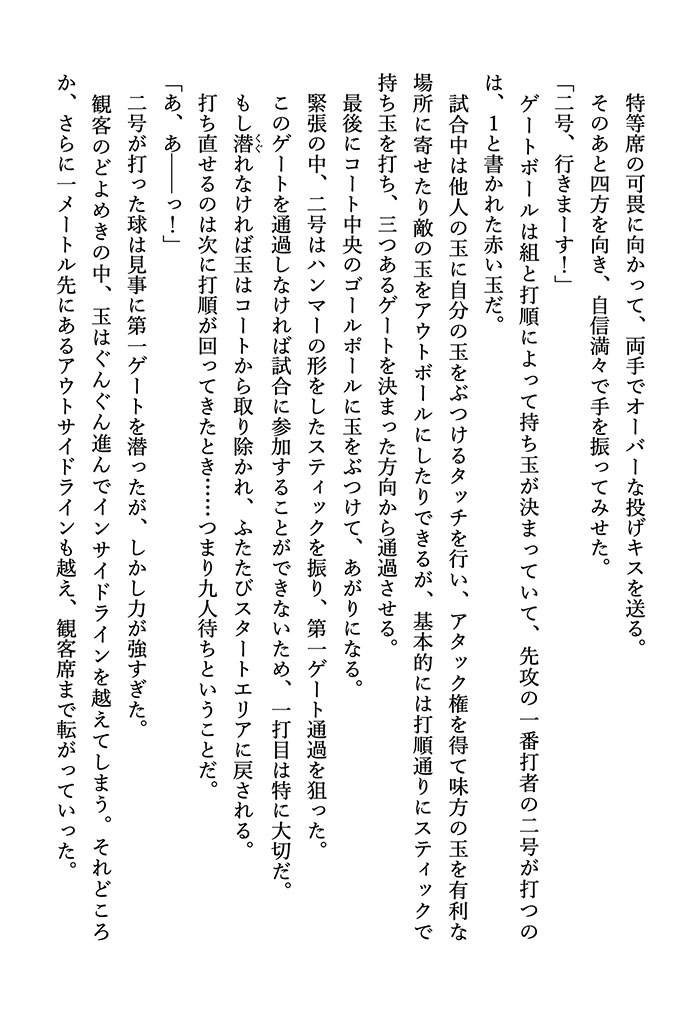 特等席の可畏に向かって、両手でオーバーな投げキスを送る。
そのあと四方を向き、自信満々で手を振ってみせた。
「二号、行きまーす！」
ゲートボールは組と打順によって持ち玉が決まっていて、先攻の一番打者の二号が打つの
は、1と書かれた赤い玉だ。
試合中は他人の玉に自分の玉をぶつけるタッチを行い、アタック権を得て味方の玉を有利な
場所に寄せたり敵の玉をアウトボールにしたりできるが、基本的には打順通りにスティックで
持ち玉を打ち、三つあるゲートを決まった方向から通過させる。
最後にコート中央のゴールポールに玉をぶつけて、あがりになる。
緊張の中、二号はハンマーの形をしたスティックを振り、第一ゲート通過を狙った。
このゲートを通過しなければ試合に参加することができないため、一打目は特に大切だ。
もし潜くぐれなければ玉はコートから取り除かれ、ふたたびスタートエリアに戻される。
打ち直せるのは次に打順が回ってきたとき……つまり九人待ちということだ。
「あ、あ――っ！」
二号が打った球は見事に第一ゲートを潜ったが、しかし力が強すぎた。
観客のどよめきの中、玉はぐんぐん進んでインサイドラインを越えてしまう。それどころ
か、さらに一メートル先にあるアウトサイドラインも越え、観客席まで転がっていった。